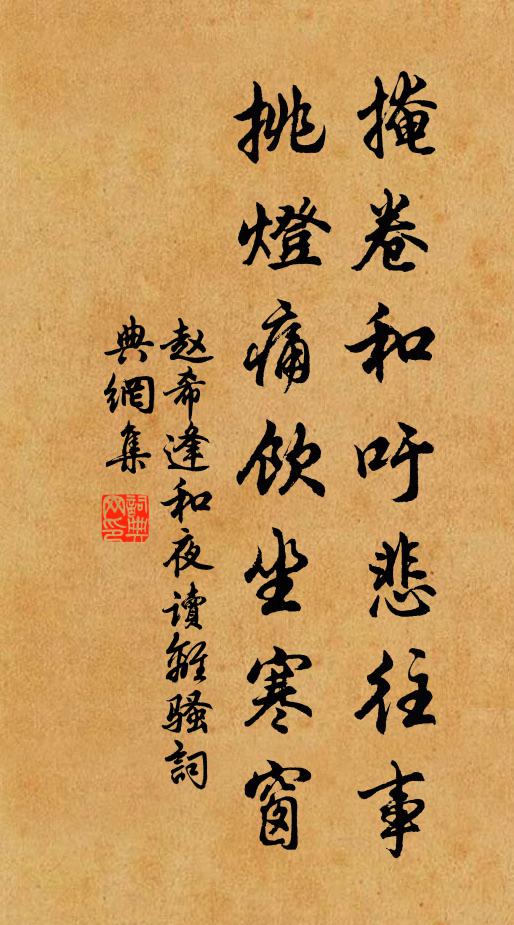 掩卷和吁悲往事
挑燈痛飲坐寒窗
赵希逢和夜讀離騷詞
典網集
詞典網印